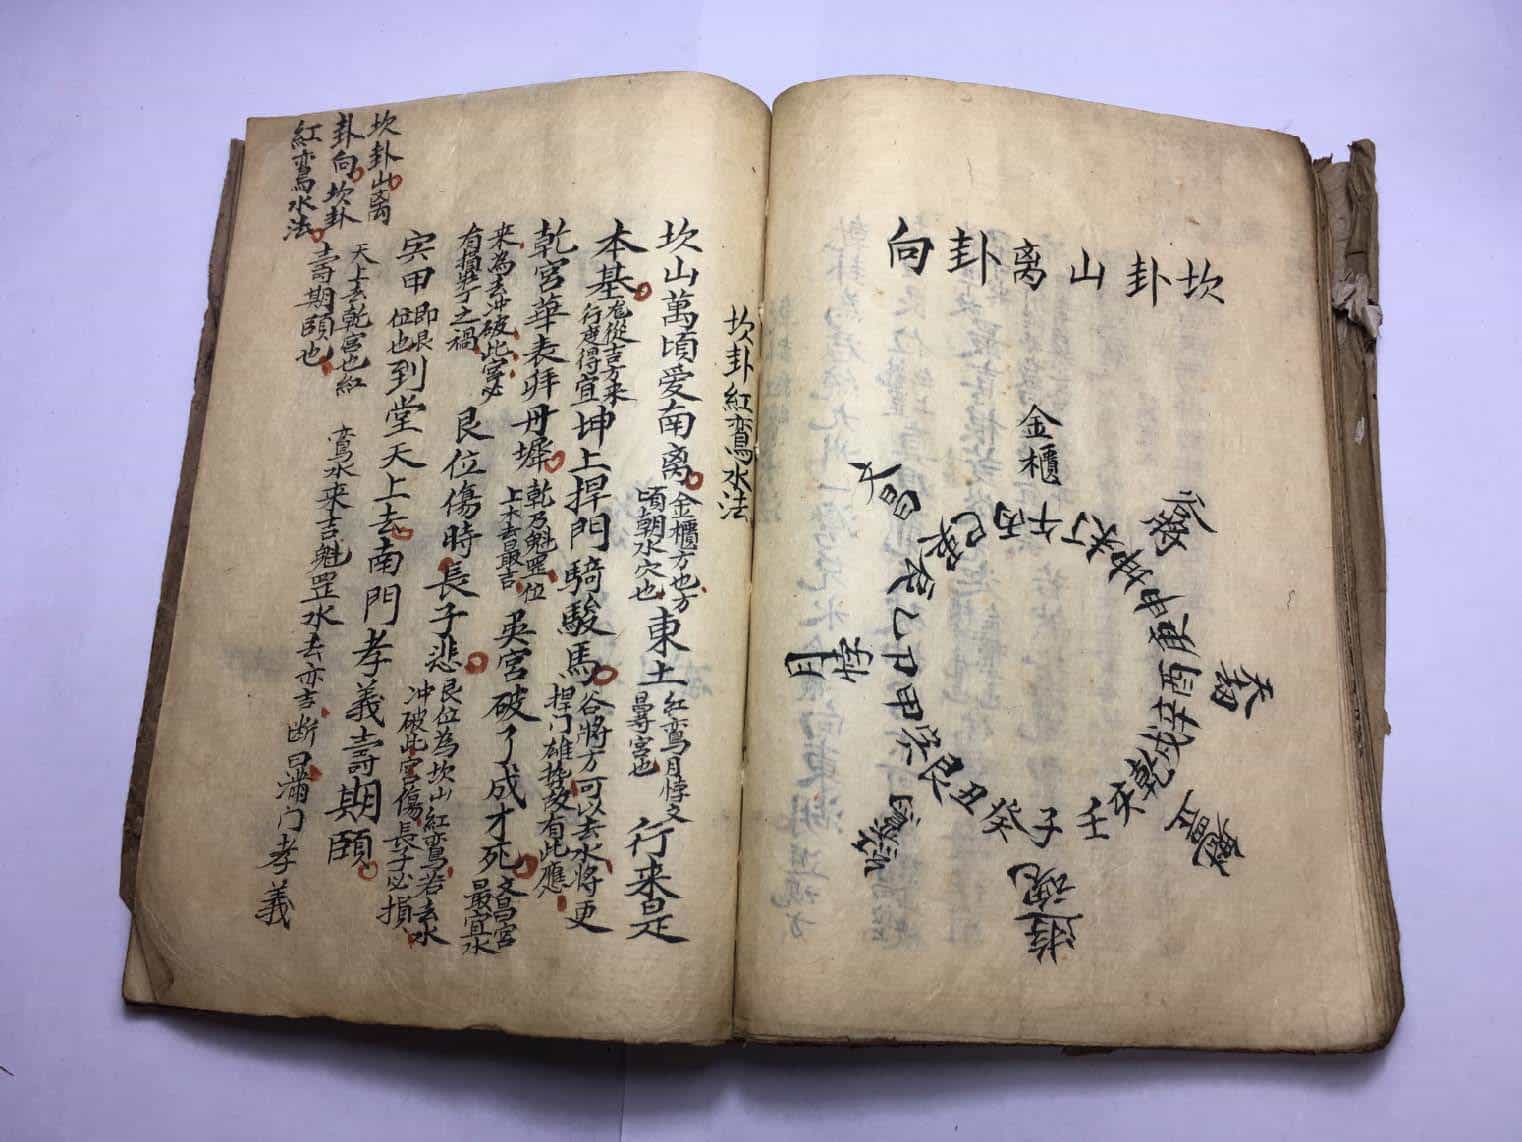 坎卦山离卦向
金櫃
文昌
遊魂
午丁未坤申庚酉辛戌乾亥壬子癸丑艮寅甲卯乙辰巽巳丙
坎卦紅鸞水法
坎山萬頃爱南离
金櫃方也方
頃朝水穴也
東土
紅鸞月悖文
宮也
行来是
本基
凢從吉方来
行度得宜
坤上捍門騎駿馬
谷將方可以去水將更
捍门雄势故有此應
乾宮華表拜丹墀
乾乃魁罡位
上水去最吉
巽宮破了成才死
文昌宮
最宜水
来為去冲破此宮必
有損丁之禍
艮位傷時長子悲
艮位為坎山紅鸞若去水
冲破此宮傷長子必損
寅甲
即艮
位也
到堂天上去南門孝義壽期頤
天上去乾宮也紅
鸞水来吉魁罡水去亦吉断曰满门孝義
壽期頤也
坎卦山离
卦向坎卦
紅鸞水法